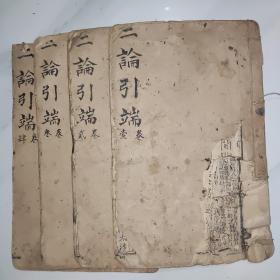 二論引端 卷壹
二論引端 卷貳
二論引端 卷叁
二論引端 卷肆